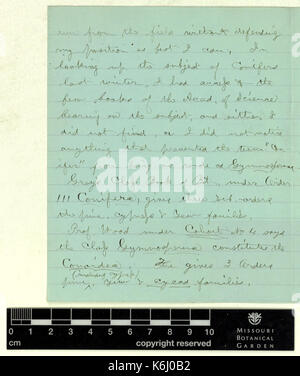 run from the field without defending
my position as best I can. In
looking up the subject of Conifers
last winter, I had access to the
few books of the Acad. of Science
bearing on the subject, and either I
did not find, or I did not notice
anything that presented the term "Con
ifer" as Gymnosperm
Gray, Class Book of Bot., under Order
111 Coniferæ, gives the sub-orders
the pine, cypress & yew families.
Prof. Wood under Cohort No 4 says
the Class Gymnosperma constitute the
Conoideæ. He gives 3 Orders
(includes cypress)
pine, yew & cycad families.
alamy
0 1 2 3 4 5 6 7 8 9 10
cm
copyright reserved
MISSOURI
BOTANICAL
GARDEN
alamy
Image ID: K6J0B2
www.alamy.com